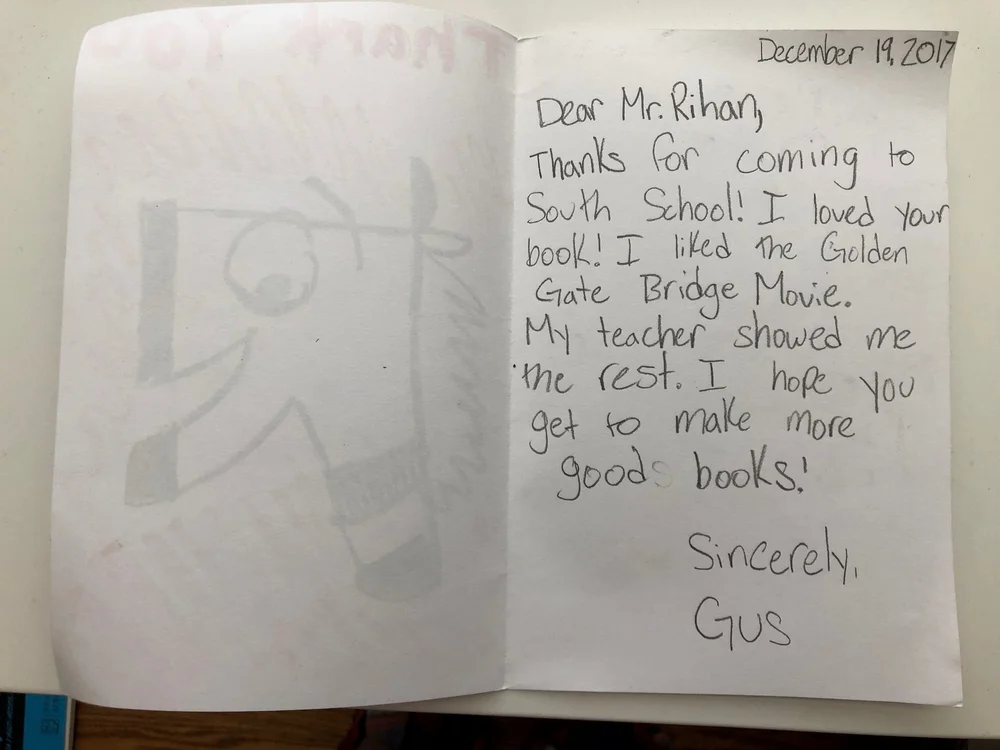 Thank You
December 19, 2017
Dear Mr. Rihan,
Thanks for coming to
South School! I loved your
book! I liked the Golden
Gate Bridge Movie.
My teacher showed me
the rest. I hope you
get to make more
good books!
Sincerely,
Gus